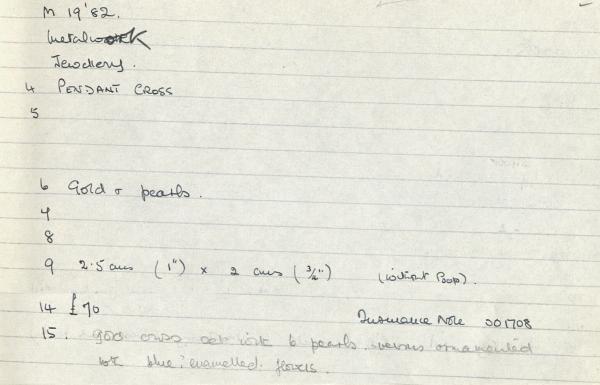 M 19'82.
Metalwork
Jewellery.
4 PENDANT CROSS
5
6 Gold & pearls.
7
8
9 2.5 cms (1") x 2 cms (3/2") (without loop).
14 £70
Insurance Note 001708
15. gold cross set with 6 pearls. reverse ornamented
with blue enamelled flowers.